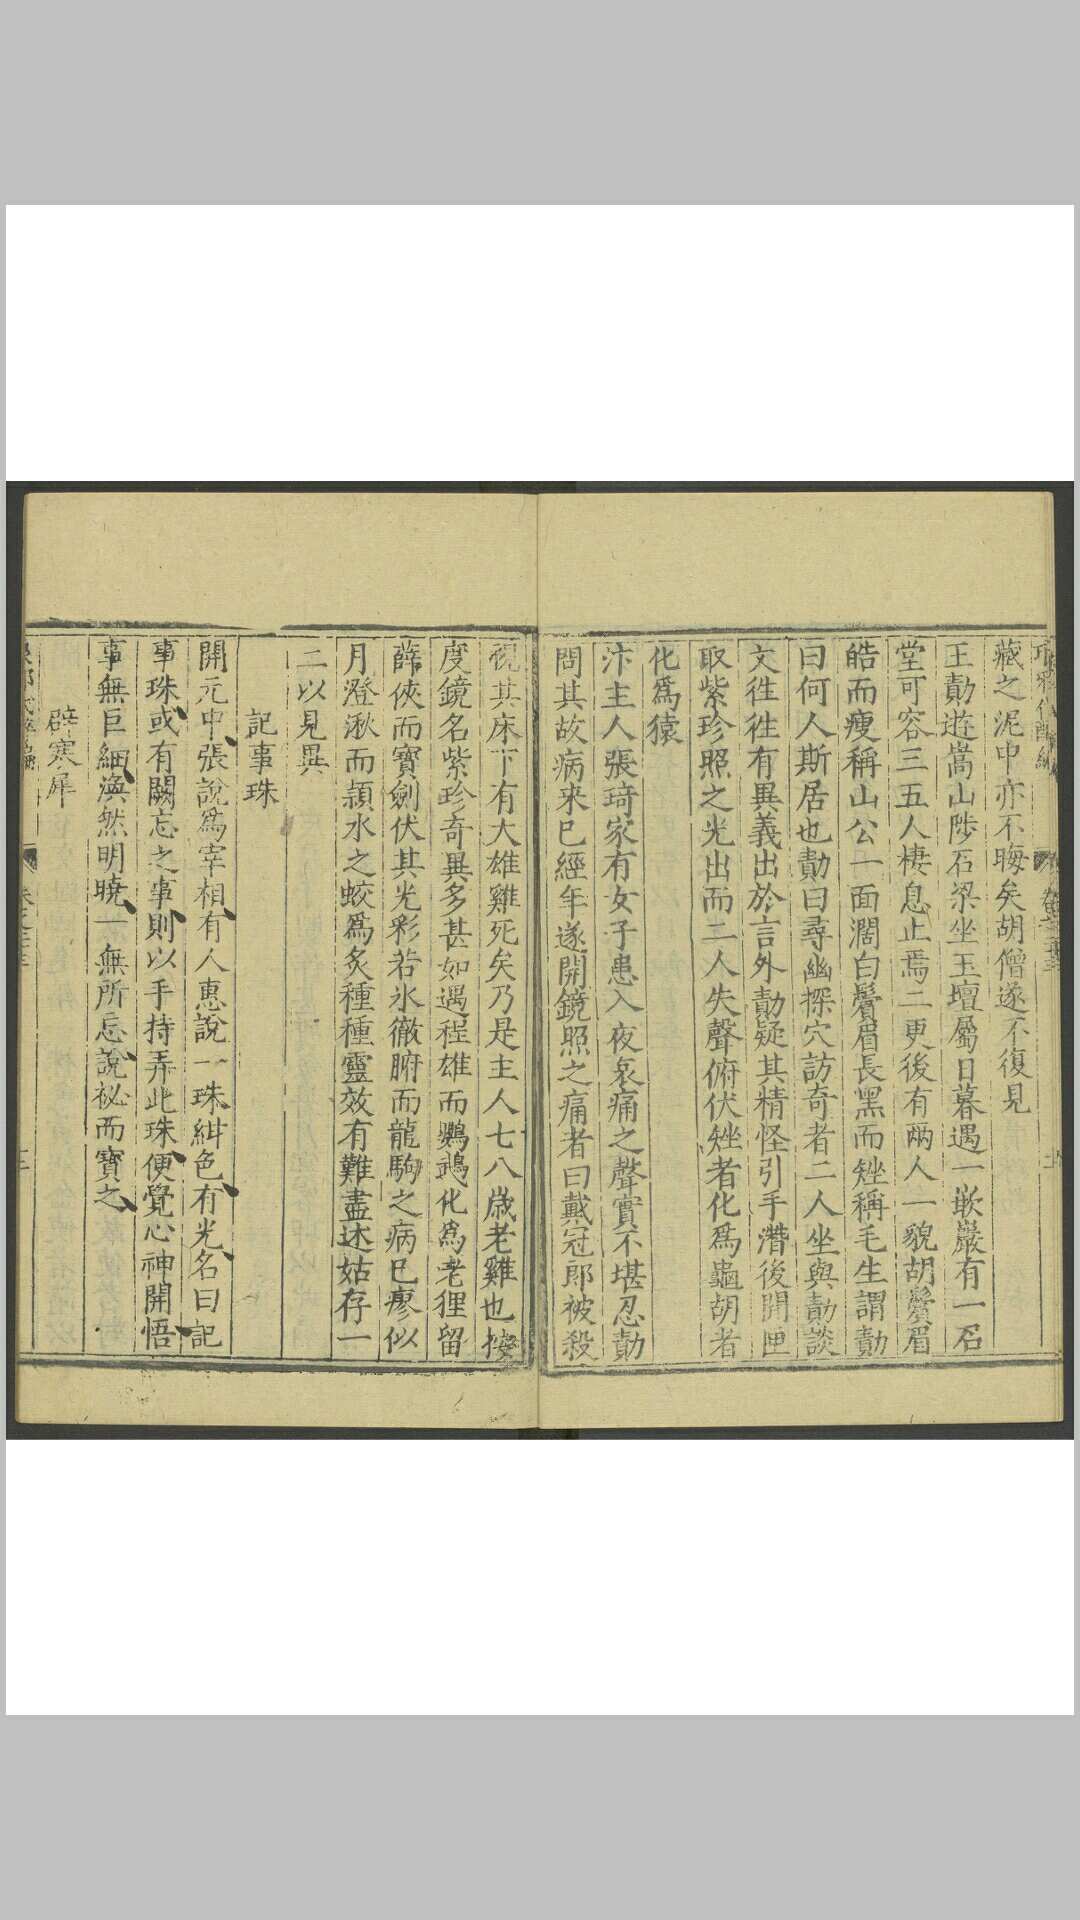 藏之泥中亦不晦矣胡僧遂不復見
王勣遊嵩山陟石梁坐玉壇屬日暮遇一嵌巖有一石
堂可容三五人棲息止焉二更後有兩人一貌胡鬢眉
皓而瘦稱山公一面濶白鬢眉長黑而矬稱毛生謂勣
曰何人斯居也勣曰尋幽探穴訪奇者二人坐與勣談
文徃徃有異義出於言外勣疑其精怪引手濳後開匣
取紫珍照之光出而二人失聲俯伏矬者化爲龜胡者
化爲猿
汴主人張琦家有女子患入夜哀痛之聲實不堪忍勣
問其故病来已經年遂開鏡照之痛者曰戴冠郎被殺
視其床下有大雄雞死矣乃是主人七八歲老雞也按
度鏡名紫珍奇異多甚如遇程雄而鸚鵡化爲老狸留
薛俠而寶劍伏其光彩若氷徹腑而龍駒之病已廖似
月澄湫而頴水之蛟爲炙種種靈效有難盡述姑存一
二以見異
記事珠
開元中張說爲宰相有人惠說一珠紺色有光名曰記
事珠或有闕忘之事則以手持弄此珠便覺心神開悟
事無巨細渙然明曉一無所忘說祕而寶之
辟寒犀
卷之三十三